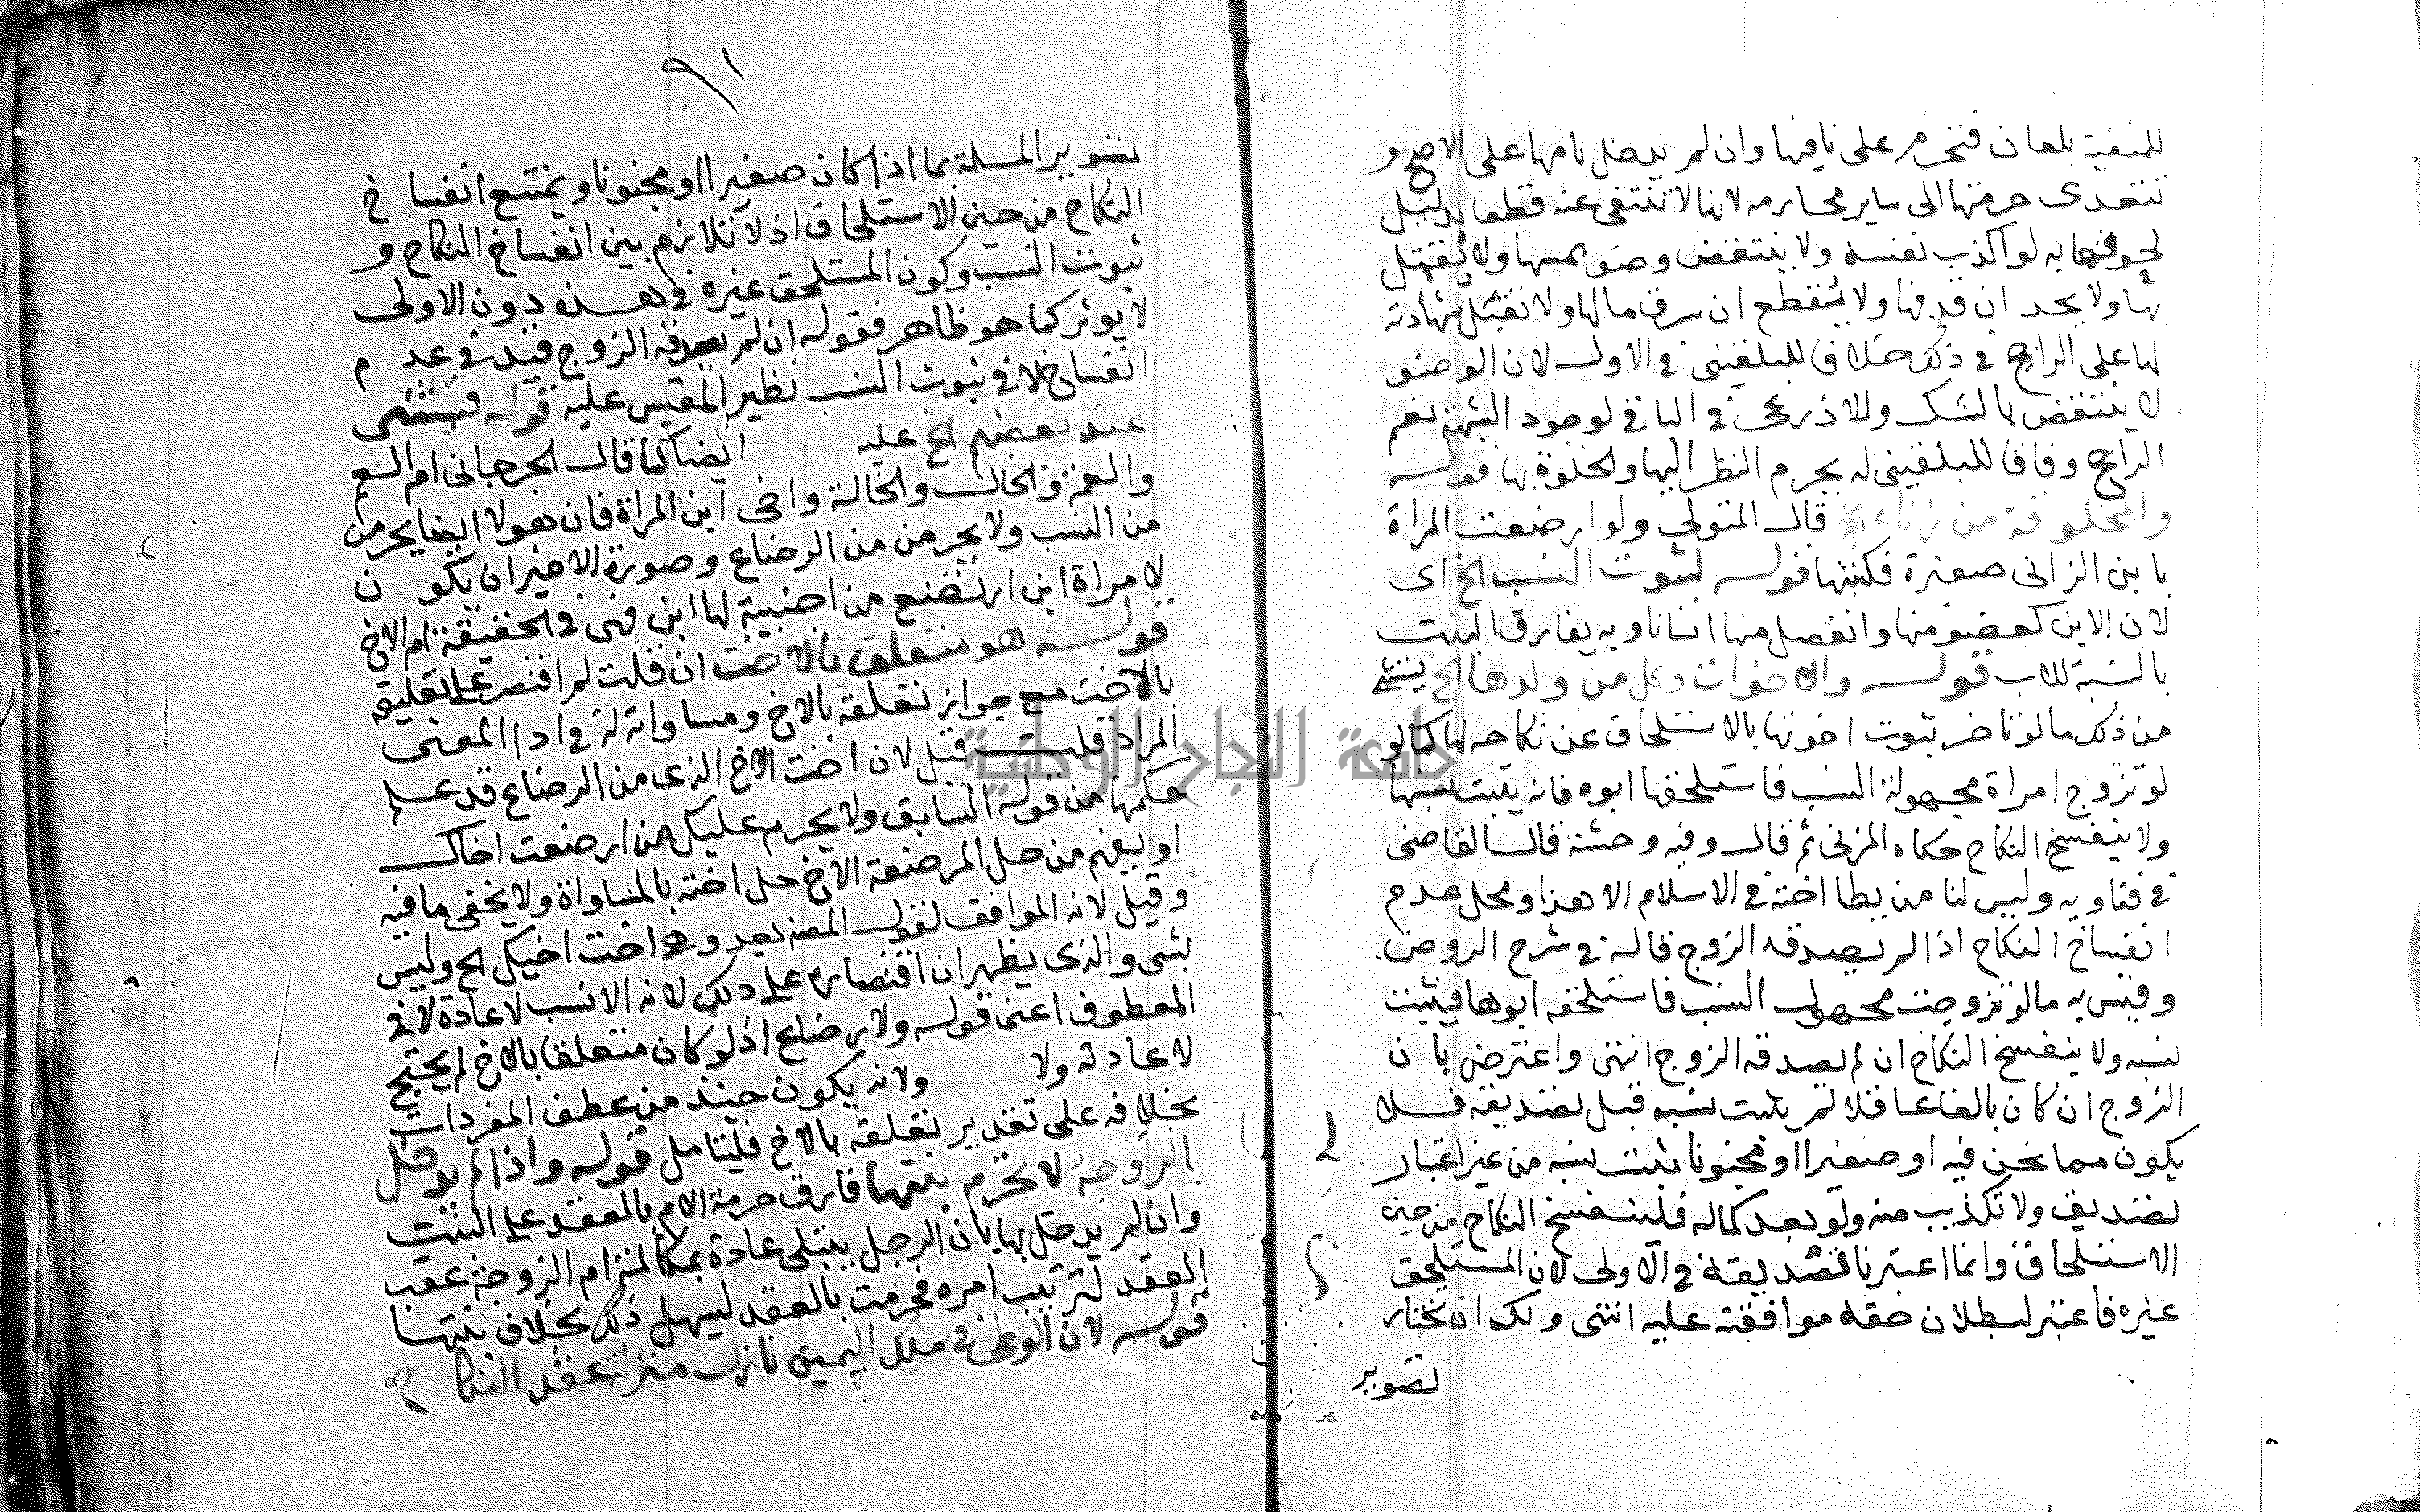 للمنفية بلعان فتحرم على نافيها وان لم يدخل بامها على الاصح و
تتعدى حرمتها الى ساير محارمه لانها لا تنتفى عنه قطعا بدليل
لحوقها به لو اكذب نفسه ولا ينتقض وضو بمسها ولا يقتل
بها ولا يحد ان قذفها ولا يقطع ان سرق مالها ولا تقبل شهادته
لها على الراجح في ذلك خلاف للبلقينى في الاول لان الوضو
لا ينتقض بالشك وللاذرعى في الباقى لوجود الشبهة نعم
الراجح وفاقا للبلقينى له يحرم النظر اليها والخلوة بها قوله
والمخلوقة من زناه الخ قال المتولي ولو ارضعت المراة
بابن الزانى صغيرة فكبنتها قوله لثبوت النسب الخ اى
لان الابن كعضو منها وانفصل منها انسانا وبه يفارق البنت
بالنسبة للاب قوله والاخوات وكل من ولدها الخ يستثنى
من ذلك ما لو تاخر ثبوت اخوتها بالاستلحاق عن نكاحه لها كما لو
لو تزوج امراة مجهولة النسب فاستلحقها ابوه فانه يثبت نسبها
ولا ينفسخ النكاح حكاه المزنى ثم قال وفيه وحشة قال القاضى
في فتاويه وليس لنا من يطا اخته في الاسلام الا هذا ومحل عدم
انفساخ النكاح اذا لم يصدقه الزوج قاله في شرح الروض
وقيس به ما لو تزوجت مجهولى النسب فاستلحقه ابوها فيثبت
نسبه ولا ينفسخ النكاح ان لم يصدقه الزوج انتهى واعترض بان
الزوج ان كان بالغا عاقلا لم يثبت نسبه قبل تصديقه فلا
يكون مما نحن فيه او صغيرا او مجنونا يثبت نسبه من غير اعتبار
تصديق ولا تكذيب منه ولو بعد كماله فلينفسخ النكاح من حين
الاستلحاق وانما اعتبرنا تصديقه في الاولى لان المستلحق
غيره فاعتبر لبطلان حقه موافقته عليه انتهى ولك ان تختار
تصوير
٩١
تصوير المسلة بما اذا كان صغيرا او مجنونا ويمتنع انفساخ
النكاح من حين الاستلحاق اذ لا تلازم بين انفساخ النكاح و
ثبوت النسب وكون المستلحق غيره في هذه دون الاولى
لا يوثر كما هو ظاهر فقوله ان لم يصدقه الزوج قيد في عدم
انفساخ لا في ثبوت النسب نظير المقيس عليه قوله فيستثنى
عند بعضهم الخ عليه ايضا كما قال الجرجانى ام العم
والعمة والخال والخالة واخى ابن المراة فان هولا ايضا يحرمن
من النسب ولا يحرمن من الرضاع وصورة الاخير ان يكون
لامراة ابن ارتضع من اجنبية لها ابن فهى في الحقيقة ام الاخ
قوله هو متعلق بالاخت ان قلت لم اقتصر على تعليقه
بالاخت مع جواز تعلقه بالاخ ومساواته له في ادا المعنى
المراد قلت قيل لان اخت الاخ الذى من الرضاع قد علم
حكمها من قوله السابق ولا يحرم عليك من ارضعت اخاك
او يفهم من حل المرضعة الاخ حل اخته بالمساواة ولا يخفى ما فيه
وقيل لانه الموافق لقول المصنف بعد وهو اخت اخيك الخ وليس
بشى والذى يظهر ان اقتصاره على ذلك لانه الانسب لاعادة لا في
المعطوف اعنى قوله ولا رضاع اذ لو كان متعلقا بالاخ لم يحتج
لاعادته ولا ولانه يكون حينئذ من عطف المفردات
بخلافه على تقدير تعلقه بالاخ فليتامل قوله واذا لم يدخل
بالزوجة لا تحرم بنتها فارق حرمة الام بالعقد على البنت
وان لم يدخل بها بان الرجل يبتلى عادة بمكالمة ام الزوجة عقب
العقد لترتيب امره فحرمت بالعقد ليسهل ذلك بخلاف بنتها
قوله لان الوطى في ملك اليمين نازل منزلة عقد النكاح
جامعة النجاح الوطنية